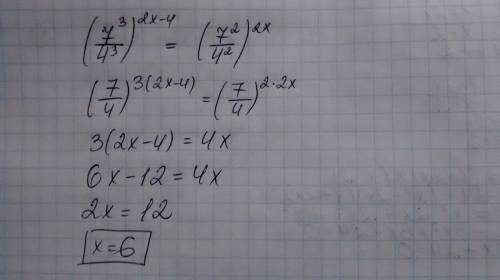 (7³/4³)²ˣ⁻⁴ = (7²/4²)²ˣ
(7/4)³⁽²ˣ⁻⁴⁾ = (7/4)²·²ˣ
3(2x-4) = 4x
6x-12 = 4x
2x = 12
x=6